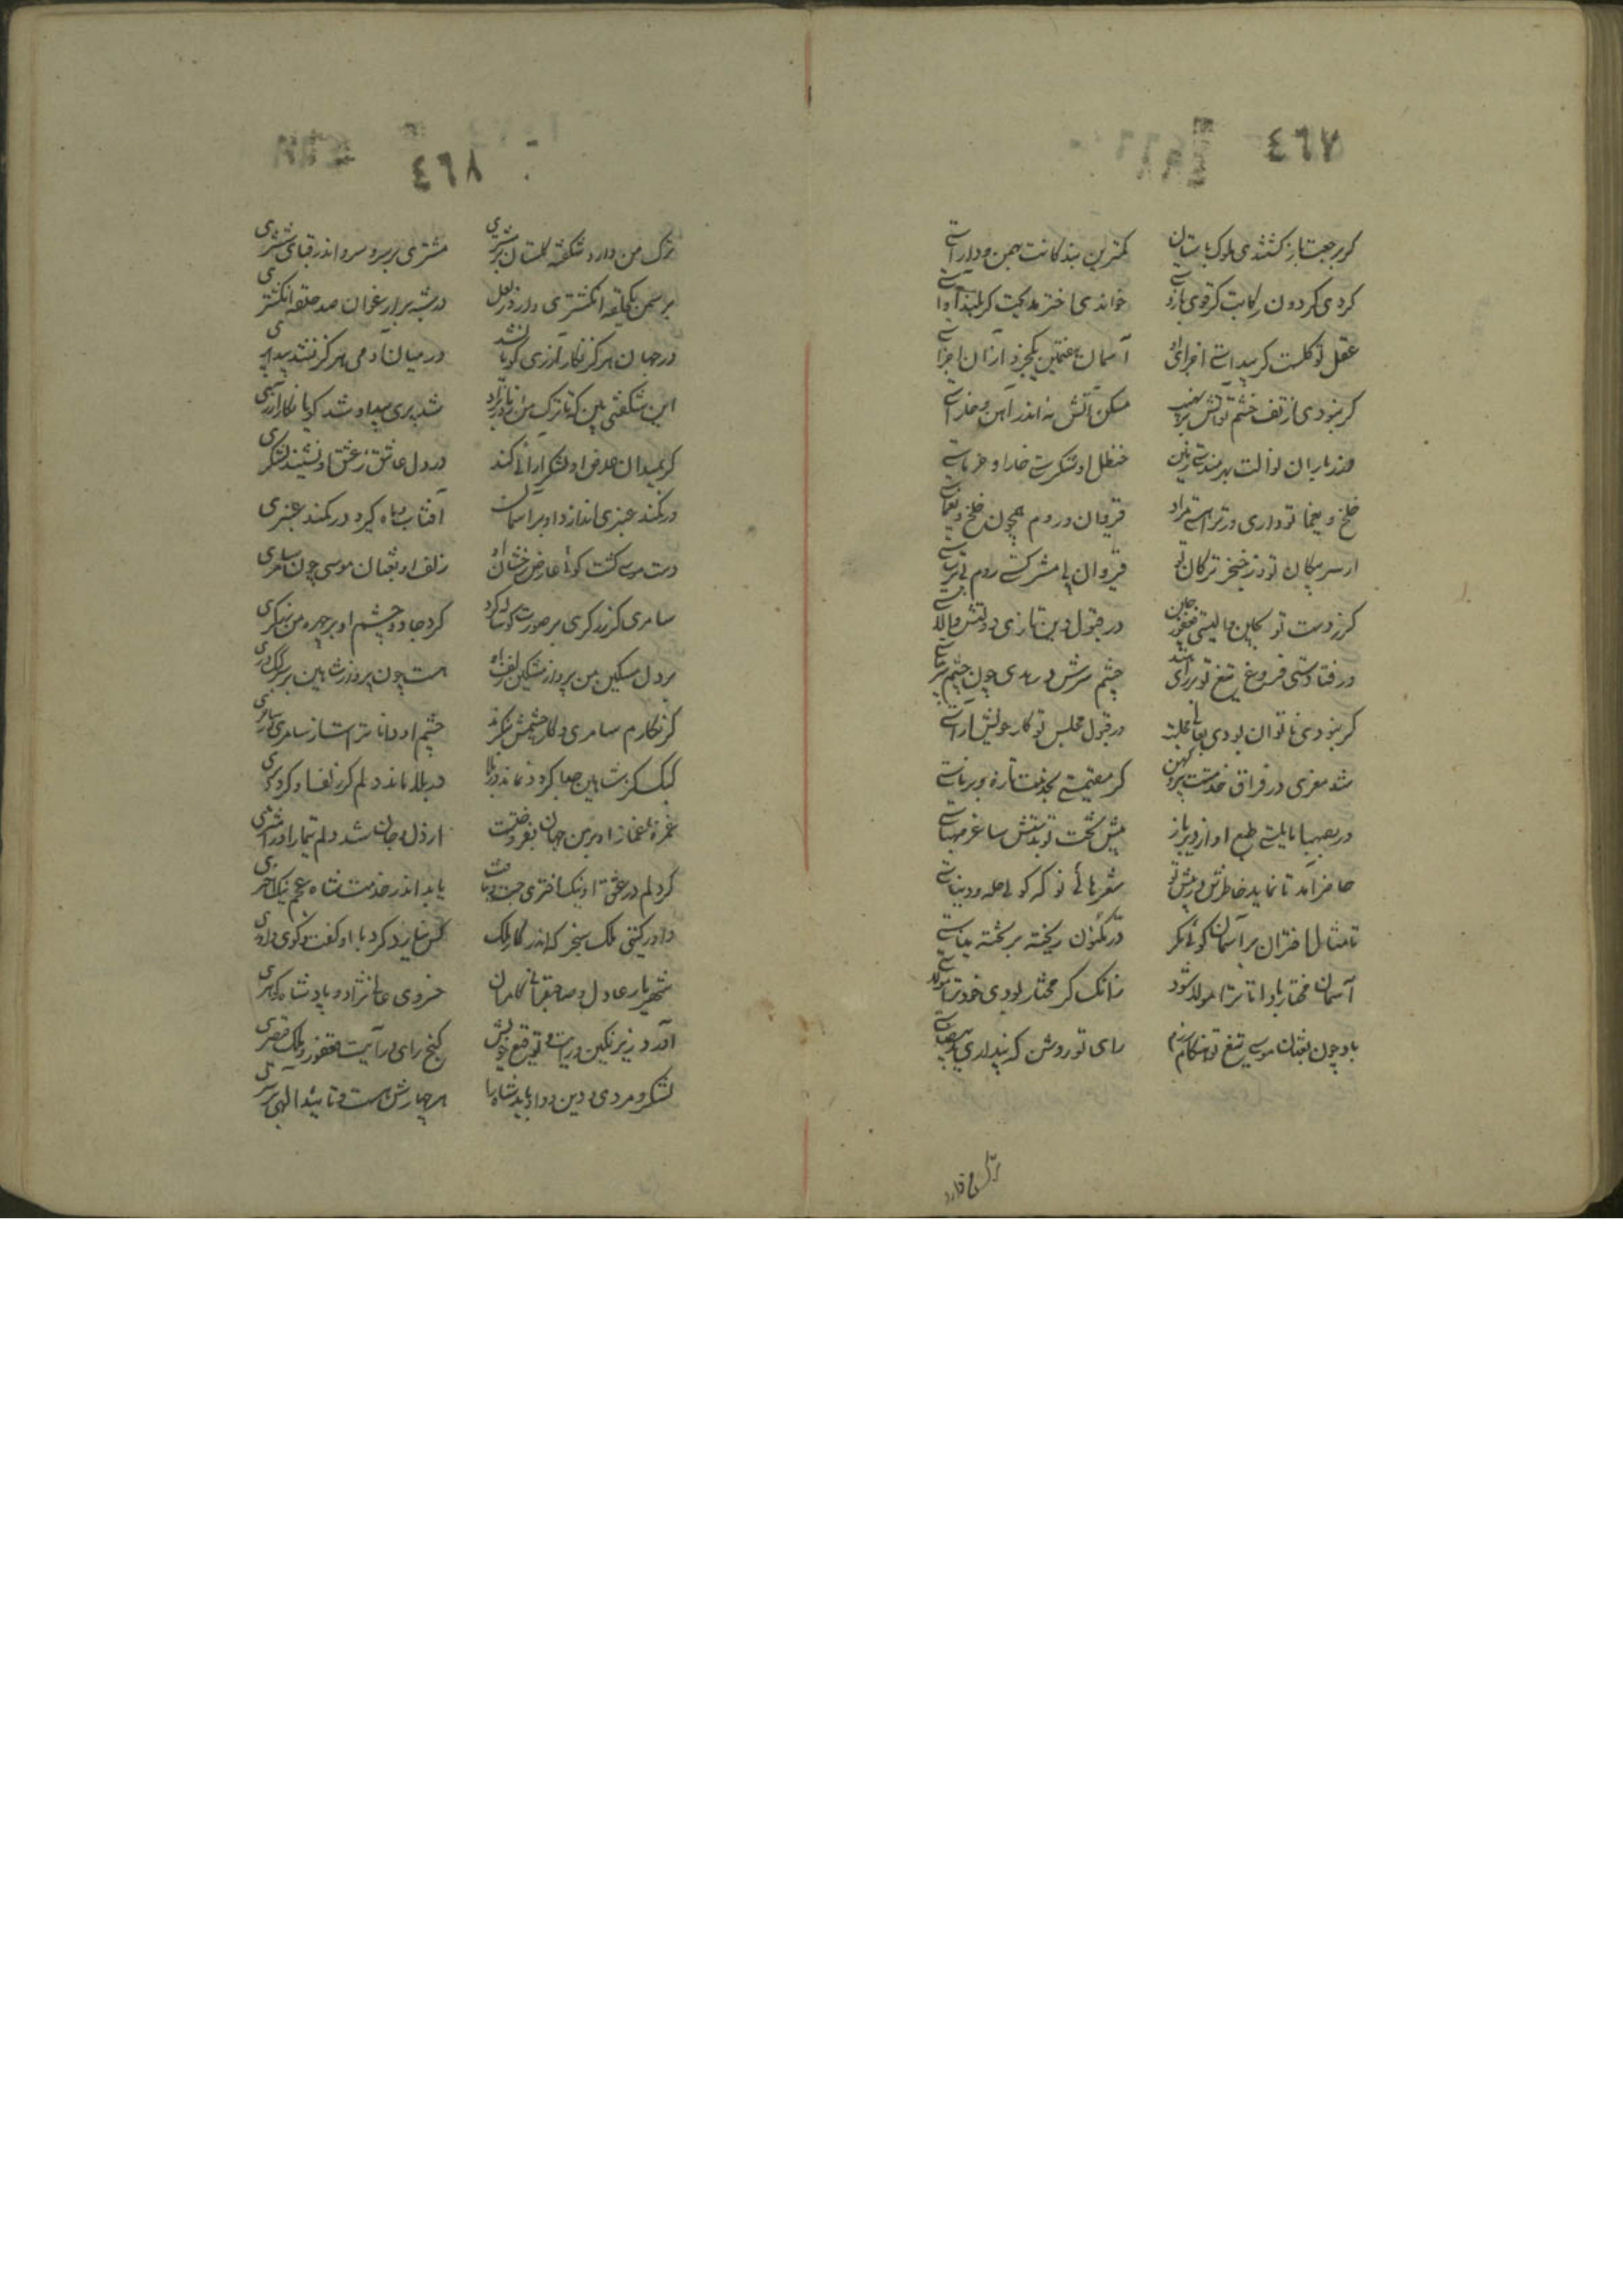 ٤٦٧
گر برجعت باز گشتندی ملوک باستان
کمترین بندگانت بهمن و داراستی
کردی گردون رکابت گر قوی بازوستی
خواندی اختر مدیحت گر بلند آواستی
عقل تو کلست گر پیداستی اجزای او
آسمان هفتمین یکجزو از آن اجزاستی
گر نبودی از تف خشم تو آتش را نهیب
مسکن آتش نه اندر آهن و خاراستی
خلخ و یغما تو داری ور ترا هستی مراد
قیروان و روم همچون خلخ و یغماستی
از سر پیکان تو وز خنجر ترکان تو
قیروان بی مشرکستی روم بی ترساستی
گر ز دست تو نگین وا لیستی فغفور چین
در قبول دین تازی دولتش والاستی
ور فتادستی فروغ تیغ تو بر رای هند
چشم سرش در هدی چون چشم سر بیناستی
در قبول مجلس تو کار خویش آراستی
شد معزی در فراق خدمتت پیر کهن
گر مقیمستی بخدمت تازه و برناستی
ور بصهبا مایلستی طبع او از دیرباز
پیش تخت تو بدستش ساغر صهباستی
حاضر آمد تا نماید خاطرش در پیش تو
شعرهائی نو که گوئی حله و دیباستی
تا مثال اختران بر آسمان گوئی مگر
در مکنون ریخته بر تخته میناستی
آسمان مختار باد اتا ترا مولد شود
زانک گر مختار بودی خود ترا مولاستی
باد چون ثعبان موسی تیغ تو هنگام رزم
رای تو روشن که پنداری ید بیضاستی
ترک من دارد
٤٦٨
ترک من دارد شکفته گلستان بر مشتری
مشتری بر سرو و سرو اندر قبای ششتری
بر سمن یکحلقه انگشتری دارد ز لعل
وز شبه بر ارغوان صد حلقه انگشتری
در جهان هرگز نگار آزری گویا نشد
در میان آدمی هرگز نشد پیدا پری
این شگفتی بین که تا ترک من از مادر بزاد
شد پری پیدا و شد گویا نگار آزری
گر بمیدان عارض او لشکر آرائی کند
در دل عاشق ز عشق او نشیند لشکری
ور کمند عنبری اندازد او بر آسمان
آفتاب و ماه گیرد در کمند عنبری
دست موسی گشت گوئی عارض رخشان او
زلف او ثعبان موسی چون سامری
سامری گر زرگری بر صورت گوساله کرد
کرد جادو چشم او بر چهره من زرگری
بر دل مسکین من پرواز مشکین زلف او
هست چون پرواز شاهین بر سر کبک دری
گر نگارم سامری در کار چشمش ننگرد
چشم او داناترست از سامری در ساحری
کبک گر ز شاهین صعبا گردد نماند در بلا
در بلا ماند دلم گر زلف او گردد بری
غمزه غماز او بر من جهان بفروختست
از دل و جان شد دلم تیمار او را مشتری
گر دلم در عشق او نیک اختری جست و نیافت
یابد اندر خدمت شاه عجم نیک اختری
داور گیتی ملک سنجر که اندر کار ملک
کس نیارد کرد با او گفت و گوی داوری
شهریار عادل و صاحبقران کامران
خسرو عالی نژاد و پادشاه گوهری
آورد زیر نگین و رایت و توقیع خویش
گنج رای و رایت فغفور و ملک قیصری
لشکر و مردی و دین و داد باید شاه را
هر چهارش هست و تایید الهی بر سری